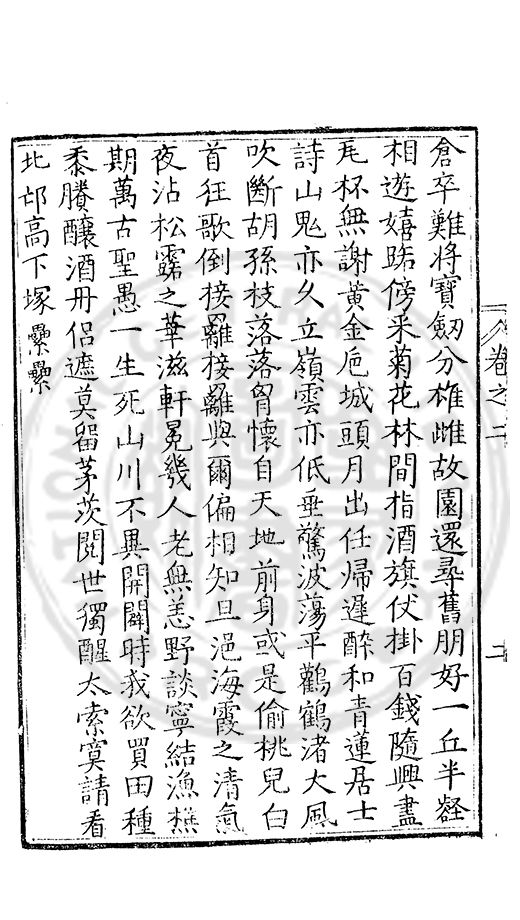 倉卒難將寶劒分雄雌故園還尋舊朋好一丘半壑
相遊嬉踞傍采菊花林間指酒旗伏掛百錢隨興盡
瓦杯無謝黃金巵城頭月出任帰遲醉和青蓮居士
詩山鬼亦久立嶺雲亦低垂驚波蕩平鸛鶴渚大風
吹斷胡孫枝落落胷懷自天地前身或是偷桃兒白
首狂歌倒接䍦接䍦與爾偏相知旦浥海霞之清氣
夜沾松露之華滋軒冕幾人老無恙野談寧結漁樵
期萬古聖愚一生死山川不異開闢時我欲買田種
黍賸釀酒毋侶遮莫留茅茨閱世獨醒太索寞請看
北邙高下塚纍纍
卷之二
二